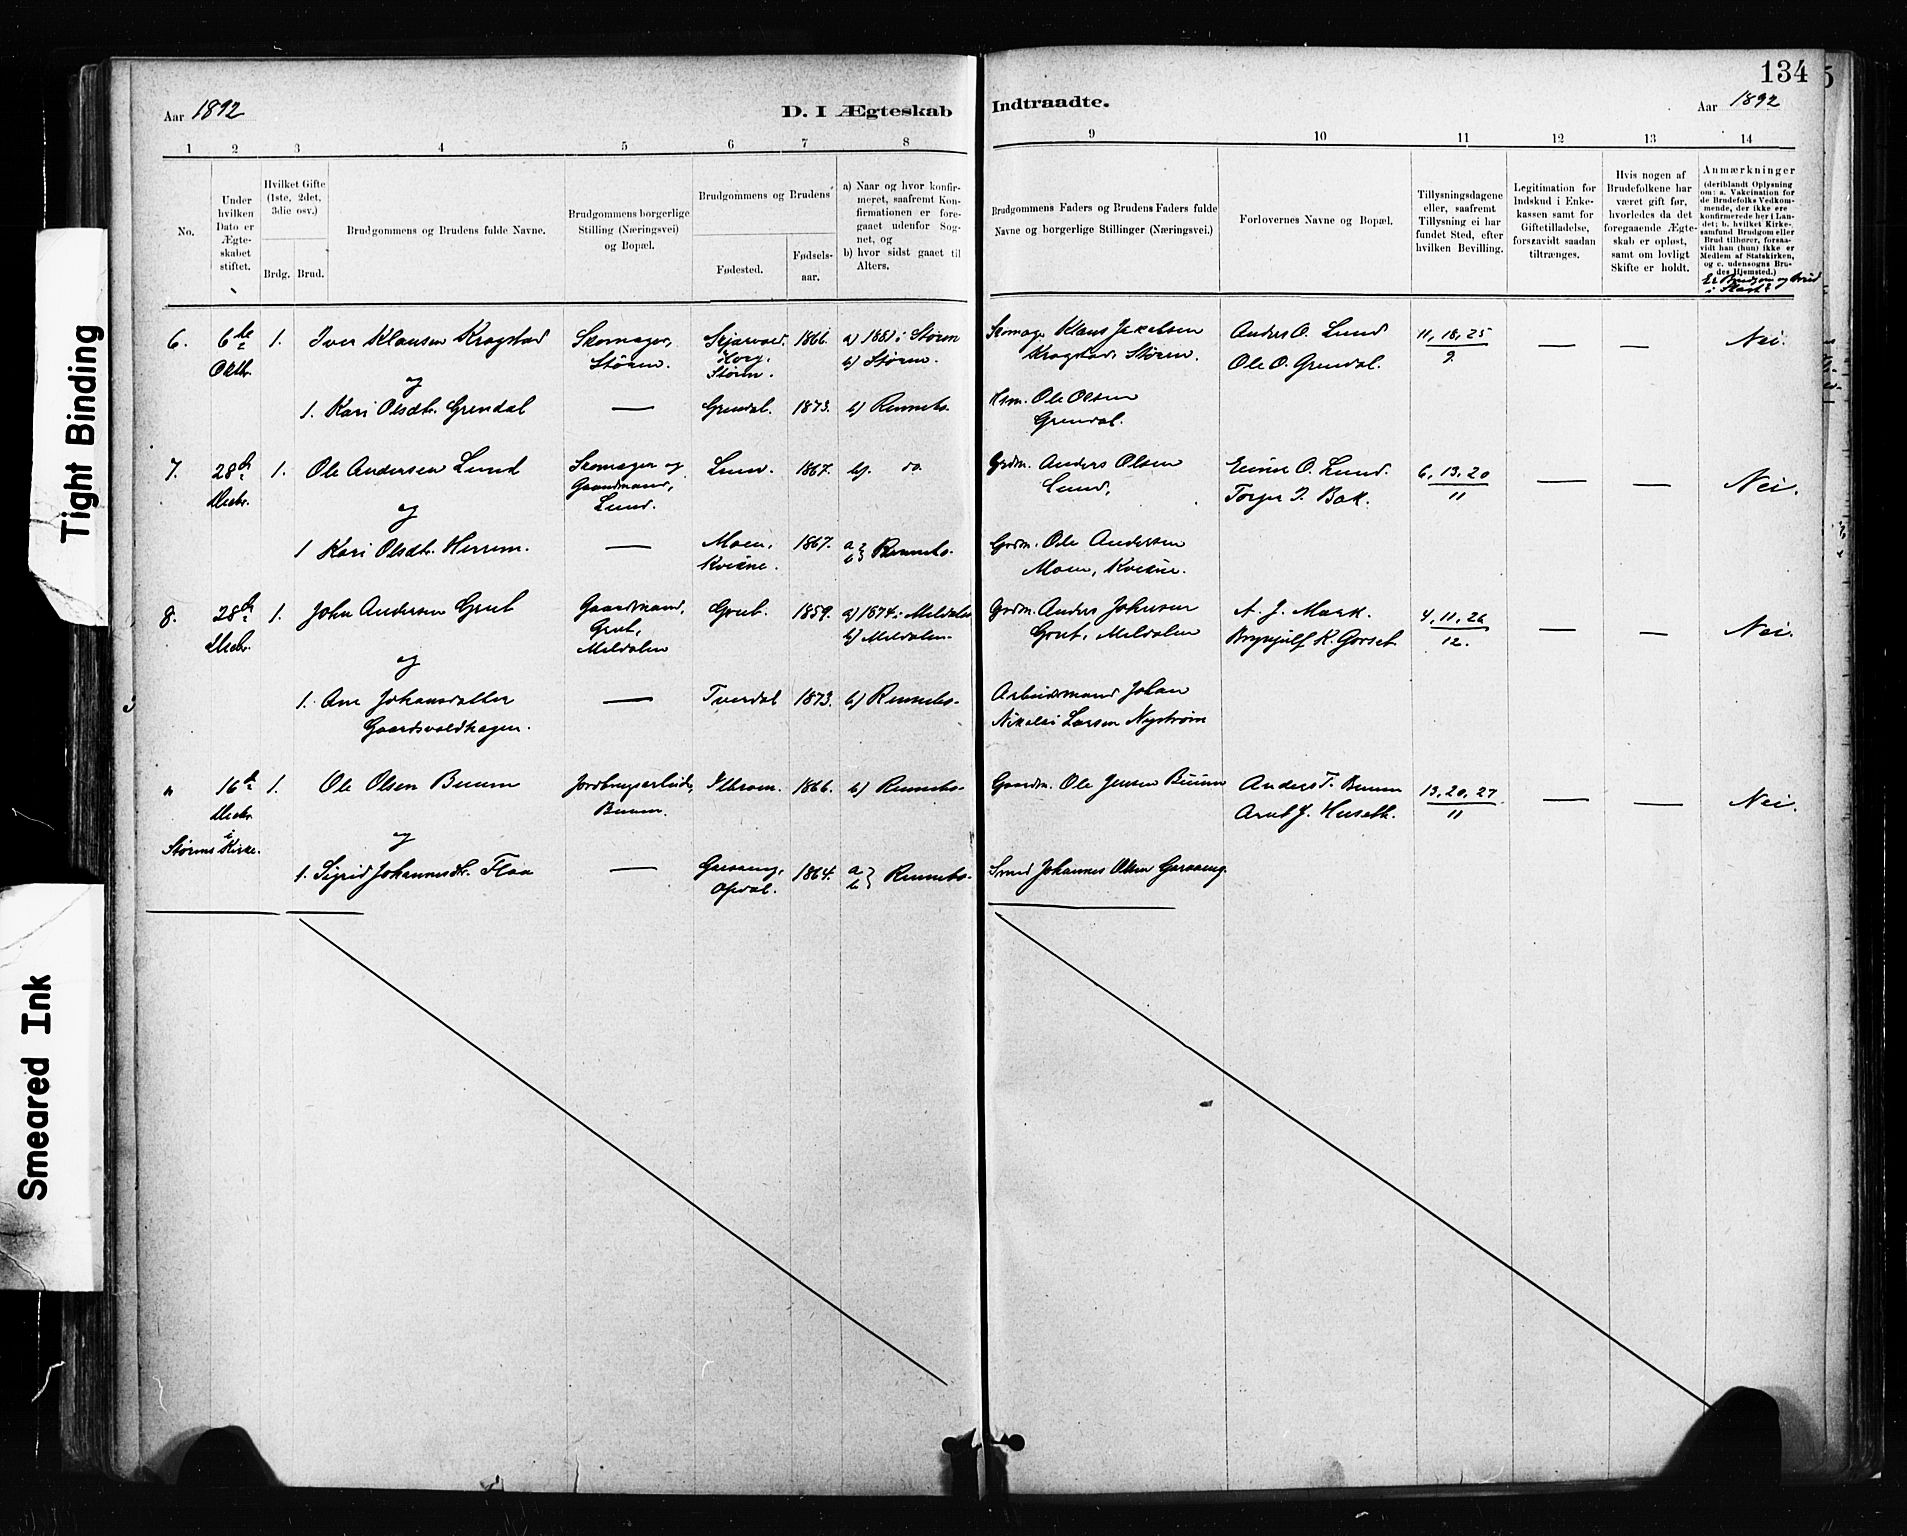 134
Aar 1892
D. I Ægteskab Indtraadte.
Aar 1892
1 2 3 4 5 6 7 8 9 10 11 12 13 14
No.
Under
hvilken
Dato er
Ægte-
skabet
stiftet.
Hvilket Gifte
(1ste, 2det,
3die osv.)
Brdg. Brud.
Brudgommens og Brudens fulde Navne.
Brudgommens borgerlige
Stilling (Næringsvei)
og Bopæl.
Brudgommens og Brudens
Fødested.
Fødsels-
aar.
a) Naar og hvor konfir-
meret, saafremt Kon-
firmationen er fore-
gaaet udenfor Sog-
net, og
b) hvor sidst gaaet til
Alters.
Brudgommens Faders og Brudens Faders fulde
Navne og borgerlige Stillinger (Næringsvei.)
Forlovernes Navne og Bopæl.
Tillysningsdagene
eller, saafremt
Tillysning ei har
fundet Sted, efter
hvilken Bevilling.
Legitimation for
Indskud i Enke-
kassen samt for
Giftetilladelse,
forsaavidt saadan
tiltrænges.
Hvis nogen af
Brudefolkene har
været gift før,
hvorledes da det
foregaaende Ægte-
skab er opløst,
samt om lovligt
Skifte er holdt.
Anmærkninger
(deriblandt Oplysning
om: a. Vakcination for
de Brudefolks Vedkom-
mende, der ikke ere
konfirmerede her i Lan-
det; b. hvilket Kirke-
samfund Brudgom eller
Brud tilhører, forsaa-
vidt han (hun) ikke er
Medlem af Statskirken,
og c. udensogns Bru-
des Hjemsted.)
Er Brudgom og Brud
i Slægt?
6. 6te 1. Iver Klausen Kragstad Skomager, 1866. a) 1881 i Støren Skomag. Klaus Jakobsen Anders O. Lund 11, 18, 25 — — Nei.
Oktbr. Støren. Horg, b) Støren. Kragstad, Støren. Ole O. Grendal. 9
Støren.
og
1. Kari Olsdtr. Grendal — Grendal. 1873. b) Rennebo. Hsm. Ole Olsen
Grendal.
7. 28de 1. Ole Andersen Lund Skomager og Lund. 1867. b). do. Grdm. Anders Olsen O. Lund. 6, 13, 20 — — Nei.
Decbr. Gaardmand, Lund, Bak. 11
Lund.
og
1 Kari Olsdtr. Herrem. — Moen, 1867. a b} Rennebo. Grdm. Ole Andersen
Kvikne. Moen, Kvikne.
8. 28de 1. John Andersen Grut Gaardmand, Grut. 1859. a) 1874 i Meldalen Grdm. Anders Johnsen A. J. Mærk. 4, 11, 26 — — Nei.
Decbr. Grut, b) Meldalen. Grut, Meldalen Brynjulf K. Gorset 12.
Meldalen
og
1. Ane Johansdatter — Tverdal 1873. b) Rennebo. Arbeidsmand Johan
Gaardsvoldhagen. Nikolai Larsen Nystrøm
" 16de 1. Ole Olsen Buum Jordbrugsarbeider, 1866. b) Rennebo. Gaardm. Ole Jensen Buum Anders T. Buum 13, 20, 27 — — Nei.
Decbr. Buum. Arnt J. Huseth. 11
i
Størens Kirke.
og
1. Sigrid Johannesdtr. Flaa — Garaaeng, 1864. a b} Rennebo. Smed Johannes Olsen Garaaeng.
Opdal.
Tight Binding
Smeared Ink